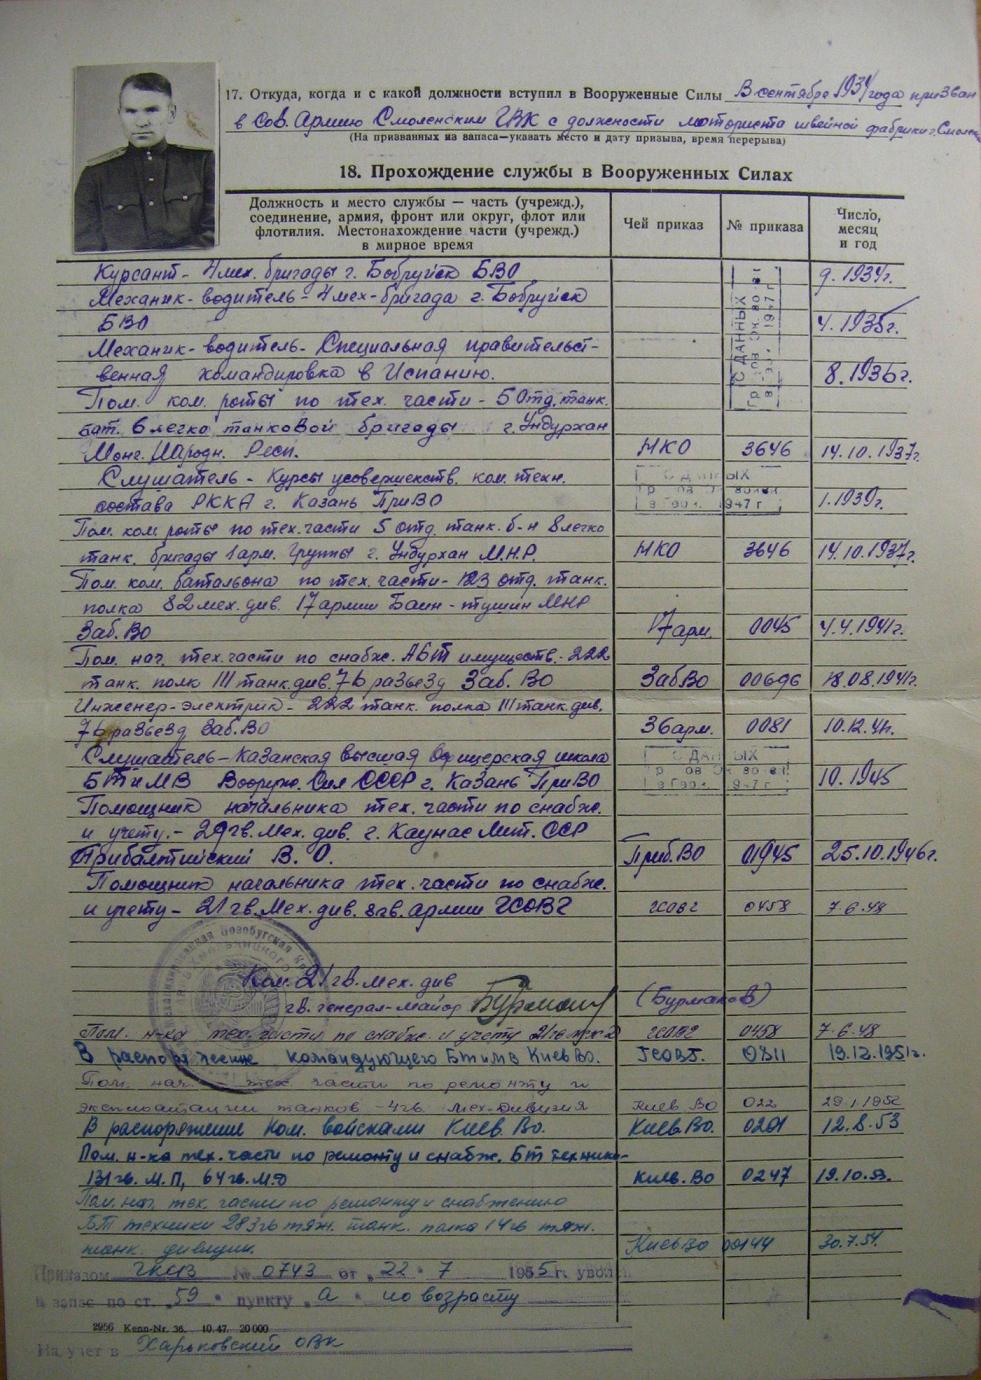 17. Откуда, когда и с какой должности вступил в Вооруженные Силы В сентябре 1934 года призван
в Сов. Армию Смоленским ГВК с должности моториста швейной фабрики г. Смоленск
(На призванных из запаса—указать место и дату призыва, время перерыва)
18. Прохождение службы в Вооруженных Силах
Должность и место службы — часть (учрежд.), соединение, армия, фронт или округ, флот или флотилия. Местонахождение части (учрежд.) в мирное время
Чей приказ
№ приказа
Число, месяц и год
Курсант - 4 мех. бригады г. Бобруйск БВО 9. 1934г.
Механик-водитель - 4 мех-бригада г. Бобруйск
БВО 4. 1935г.
Механик-водитель - Специальная правительст-
венная командировка в Испанию. 8. 1936г.
Пом. ком. роты по тех. части - 5 отд. танк.
бат. 6 легко танковой бригады г. Ундурхан
Монг. Народн. Респ. НКО 3646 14. 10. 1937г.
Слушатель - Курсы усовершенств. ком. техн.
состава РККА г. Казань ПриВО 1. 1939г.
Пом. ком роты по тех. части 5 отд. танк. б-н 8 легко
танк. бригады 1 арм. группы г. Ундурхан М.Н.Р. НКО 3646 14. 10. 1937г.
Пом. ком. батальона по тех. части - 123 отд. танк.
полка 82 мех. див. 17 армии Баин-тушин МНР
Заб. ВО 17 арм. 0045 4. 4. 1941г.
Пом. нач. тех. части по снабж. АБТ имуществ. - 222
танк. полк III танк. див. 76 разъезд Заб. ВО Заб ВО 00696 18. 08. 1941г.
Инженер-электрик - 222 танк. полка III танк. див.
76 разъезд Заб. ВО 36 арм. 0081 10. 12. 41г.
Слушатель - Казанская высшая Офицерская школа
БТ и МВ Вооруж. Сил СССР г. Казань ПриВО 10. 1945
Помощник начальника тех. части по снабж.
и учету. - 29 гв. мех. див. г. Каунас Лит. ССР
Прибалтийский В. О. Приб. ВО 01945 25. 10. 1946г.
Помощник начальника тех. части по снабж.
и учету - 21 гв. Мех. див. армии ГСОВГ ГСОВГ 0458 7. 6. 48
Ком. 21 гв. мех. див
гв. генерал-майор (Бурмаков)
Пом. н-ка тех. части по снабж. и учету 21 гв. ГСОВГ 0458 7. 6. 48
В распоряжение командующего БТ и МВ Киев ВО. ГСОВГ. 0811 19. 12. 1951г.
Пом. нач. тех. части по ремонту и
эксплоатации танков - 4 гв. мех-дивизия Киев ВО 022 29. 1. 1952
В распоряжение Ком. войсками Киев. Во. Киев. Во. 0201 12. 8. 53
Пом. н-ка тех. части по ремонту и снабж. БТ техники -
131 гв. М.П, 64 гв. М.Д Киев. Во 0247 19. 10. 53.
Пом. нач. тех. части по ремонту и снабжению
БТ техники 283 гв тяж. танк. полка 14 гв тяж.
танк. дивизии. Киев ВО 00144 30. 7. 54.
Приказом № 0743 от "22" 7 1955 г. уволен
в запас по ст. "59" пункту "а" по возрасту
2956 Kenn-Nr. 36. 10. 47. 20 000
На учет в Харьковский ОВК